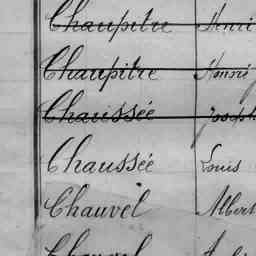 Chaupitre Henri
Chaupitre Henri
Chaussée Joseph
Chaussée Louis
Chauvel Albert
Chauvel